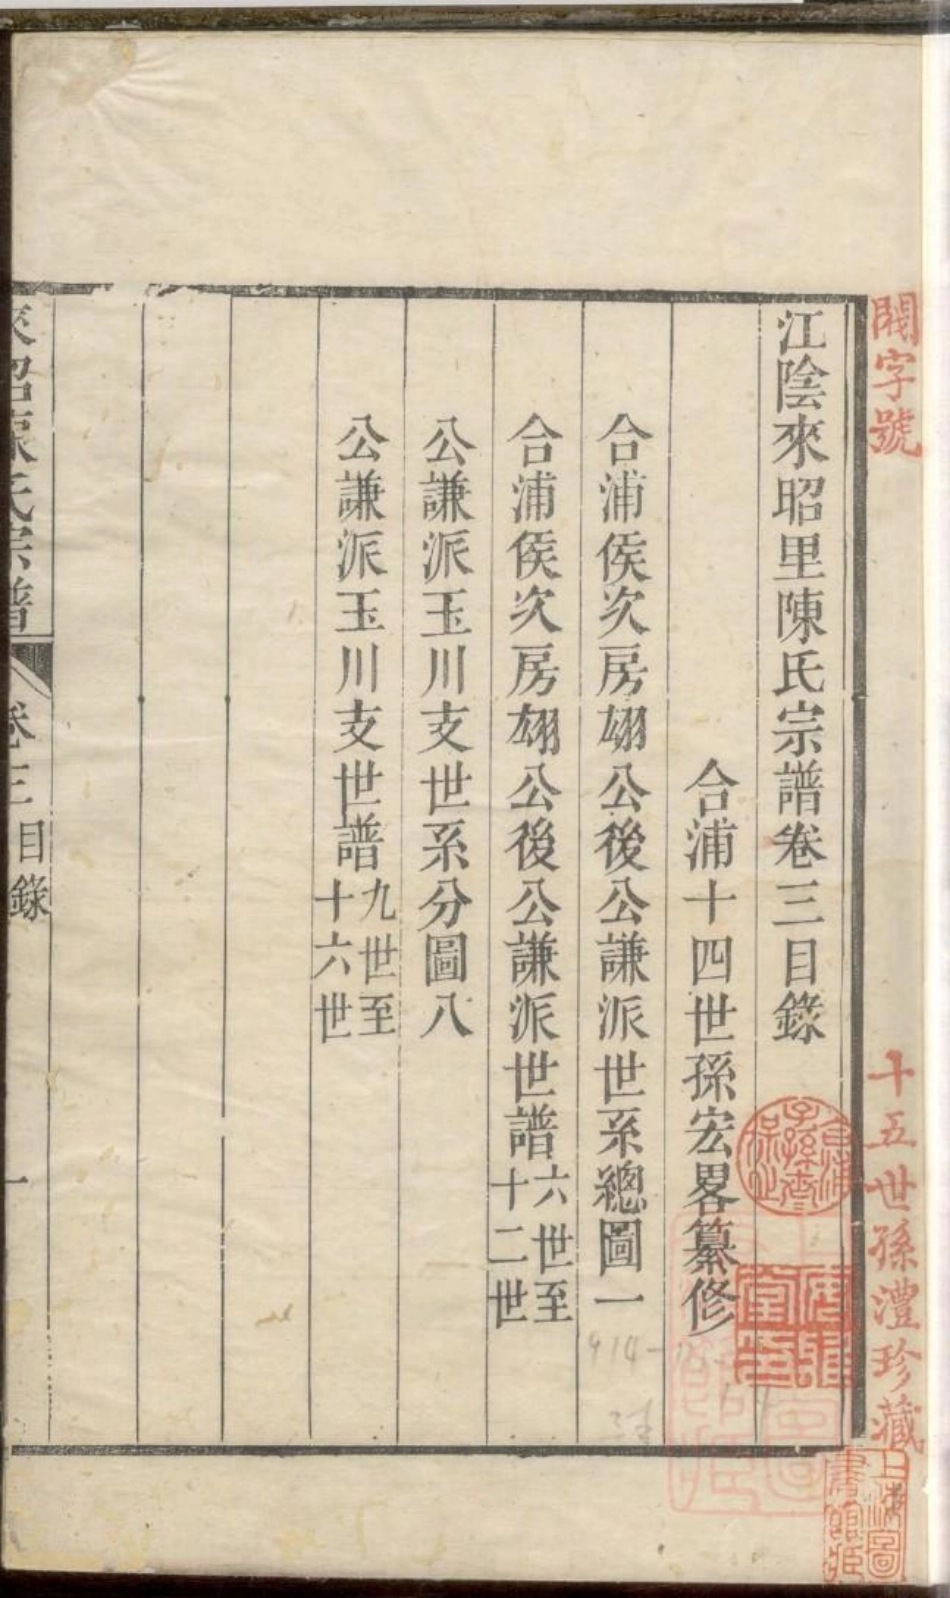 閣字號
十五世孫澧珍藏
江陰來昭里陳氏宗譜卷三目錄
合浦十四世孫宏畧纂修
合浦侯次房翃公後公謙派世系總圖一
合浦侯次房翃公後公謙派世譜六世至
十二世
公謙派玉川支世系分圖八
公謙派玉川支世譜九世至
十六世
來昭陳氏宗譜
卷三目錄
一
上海圖書館藏